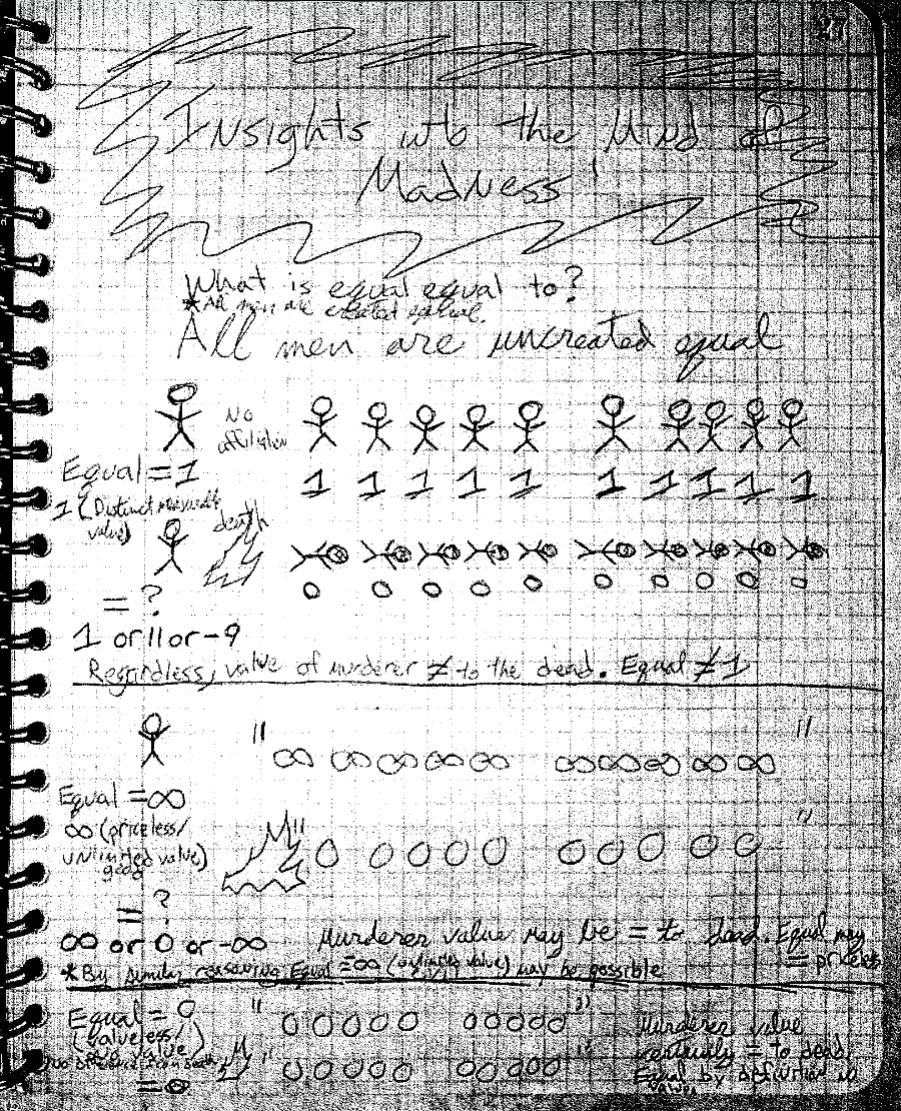 27
Insights into the Mind of
Madness
What is equal equal to?
*All men are created equal.
All men are uncreated equal
No
affiliation
Equal = 1
1 1 1 1 1 1 1 1 1 1
1 (Distinct measurable
value)
death
0 0 0 0 0 0 0 0 0 0
= ?
1 or 11 or -9
Regardless, value of murderer ≠ to the dead. Equal ≠ 1
" ∞ ∞ ∞ ∞ ∞ ∞ ∞ ∞ ∞ ∞ "
Equal = ∞
∞ (priceless/
unlimited value)
good
M " 0 0 0 0 0 0 0 0 0 0 "
= ?
∞ or 0 or -∞
Murderer value may be = to dead. Equal may
= priceless
*By similar reasoning Equal = -∞ (value) may be possible
Equal = 0
(valueless/
zero value)
" 0 0 0 0 0 0 0 0 0 0 "
No difference from death
M " 0 0 0 0 0 0 0 0 0 0 "
= 0
Murderer value
certainly = to dead.
Equal by definition is